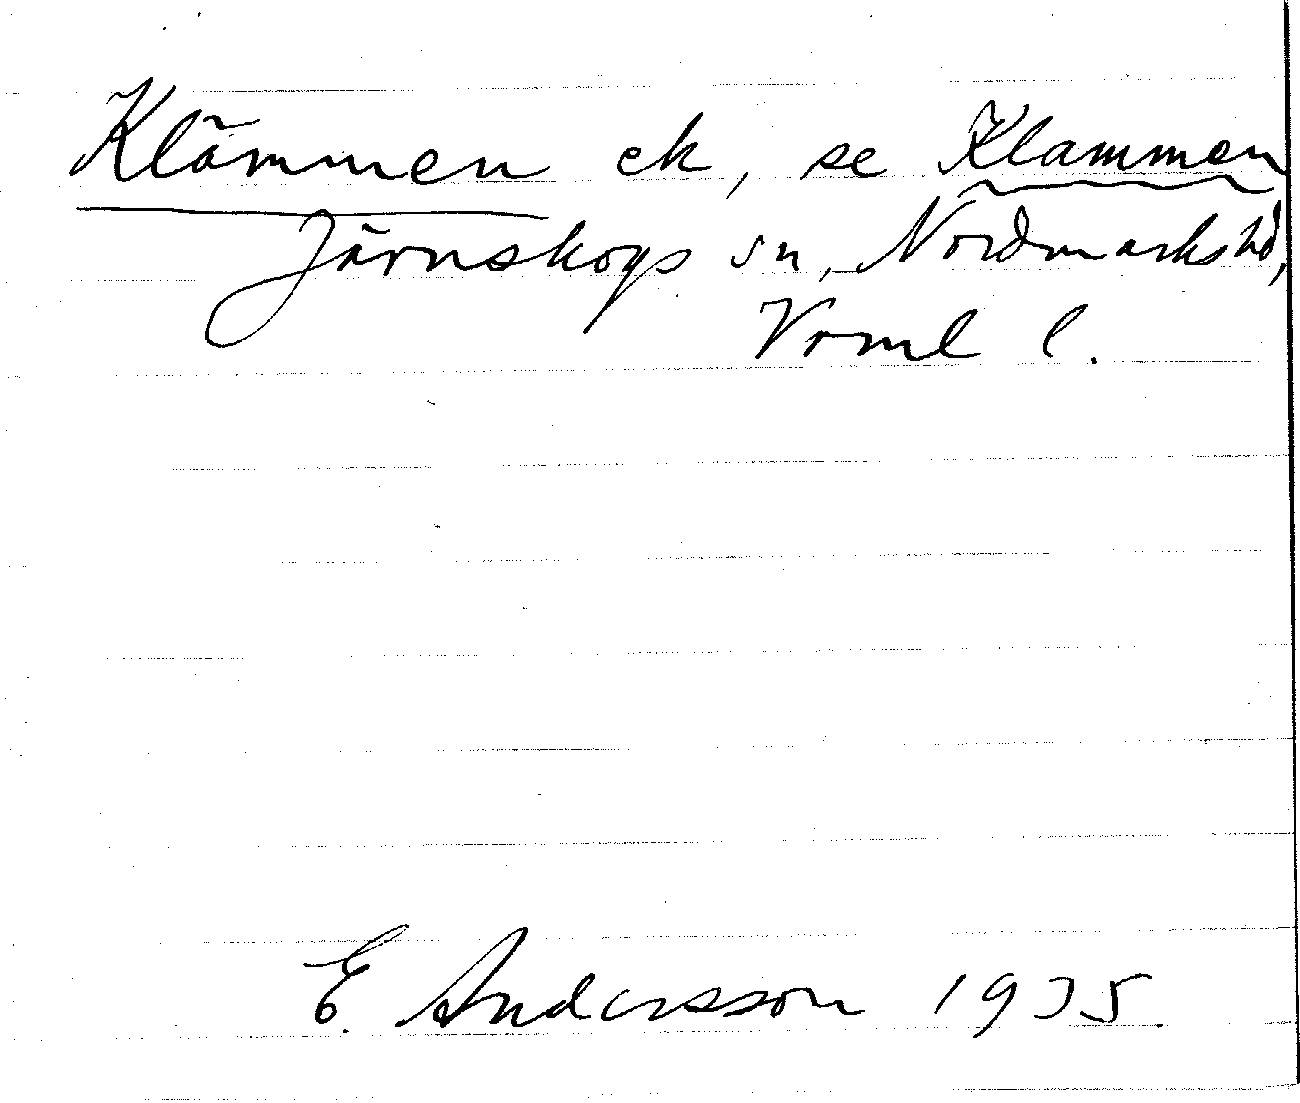 Klämmen ek, se Klammen
Järnskogs sn, Nordmarks hd,
Vrml l.
E. Andersson 1935.